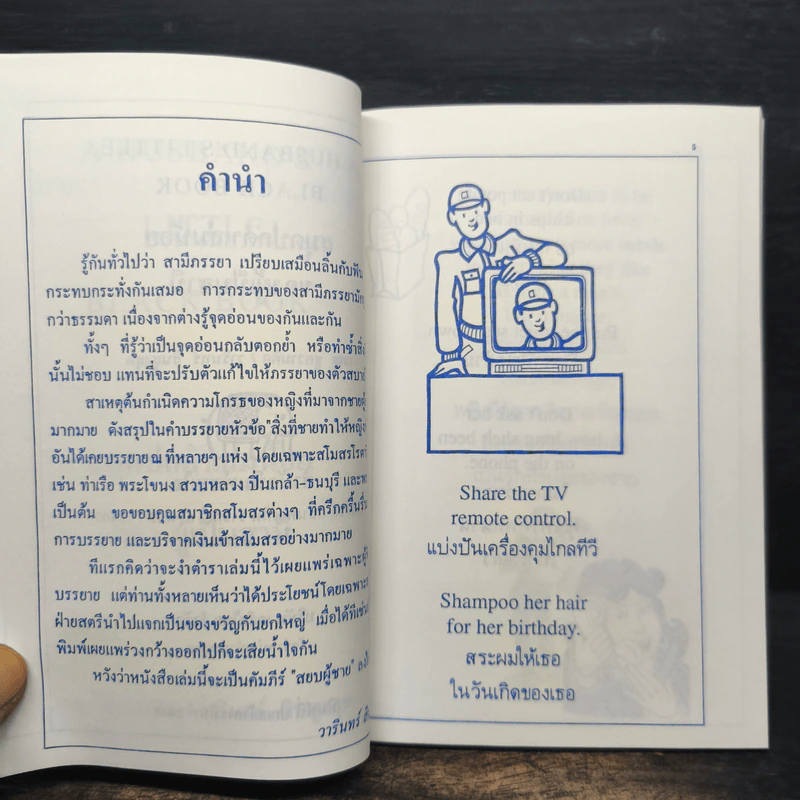 คำนำ
รู้กันทั่วไปว่า สามีภรรยา เปรียบเสมือนลิ้นกับฟัน
กระทบกระทั่งกันเสมอ การกระทบของสามีภรรยามัก
กว่าธรรมดา เนื่องจากต่างรู้จุดอ่อนของกันและกัน
ทั้งๆ ที่รู้ว่าเป็นจุดอ่อนกลับตอกย้ำ หรือทำซ้ำสิ่ง
นั้นไม่ชอบ แทนที่จะปรับตัวแก้ไขให้ภรรยาของตัวสบาย
สาเหตุต้นกำเนิดความโกรธของหญิงที่มาจากชาย
มากมาย ดังสรุปในคำบรรยายหัวข้อ "สิ่งที่ชายทำให้หญิง
อันได้เคยบรรยาย ณ ที่หลายๆ แห่ง โดยเฉพาะสโมสรโรตารี
เช่น ท่าเรือ พระโขนง สวนหลวง ปิ่นเกล้า-ธนบุรี และ
เป็นต้น ขอขอบคุณสมาชิกสโมสรต่างๆ ที่ครึกครื้น
การบรรยาย และบริจาคเงินเข้าสโมสรอย่างมากมาย
ทีแรกคิดว่าจะงำตำราเล่มนี้ไว้เผยแพร่เฉพาะ
บรรยาย แต่ท่านทั้งหลายเห็นว่าได้ประโยชน์โดยเฉพาะ
ฝ่ายสตรีนำไปแจกเป็นของขวัญกันยกใหญ่ เมื่อได้ทีเช่น
พิมพ์เผยแพร่วงกว้างออกไปก็จะเสียน้ำใจกัน
หวังว่าหนังสือเล่มนี้จะเป็นคัมภีร์ "สยบผู้ชาย"
วารินทร์
5
Share the TV
remote control.
แบ่งปันเครื่องคุมไกลทีวี
Shampoo her hair
for her birthday.
สระผมให้เธอ
ในวันเกิดของเธอ